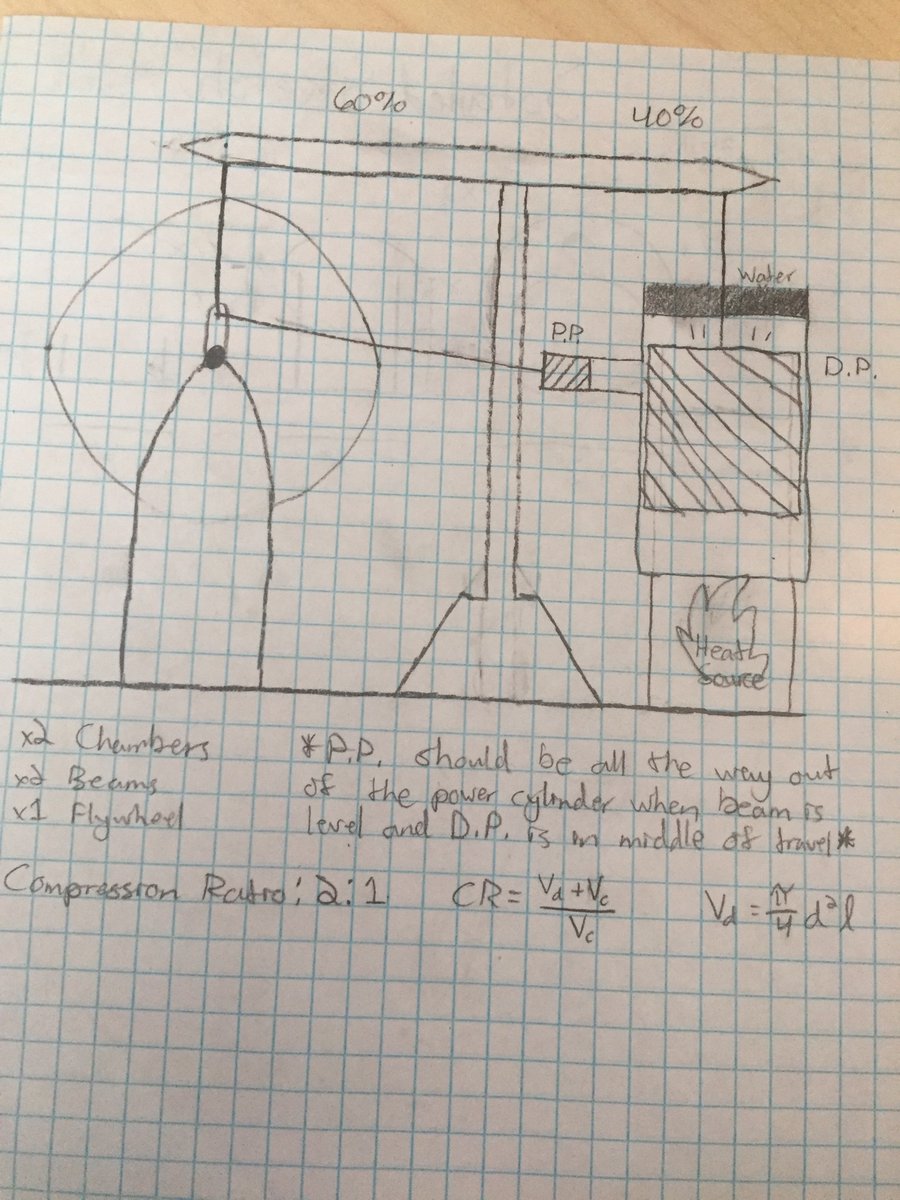 60%
40%
Water
P.P.
D.P.
Heat
Source
x2 Chambers
x2 Beams
x1 Flywheel
*P.P. should be all the way out
of the power cylinder when beam is
level and D.P. is in middle of travel*
Compression Ratio: 2:1
CR = Vd + Vc / Vc
Vd = π/4 d²l